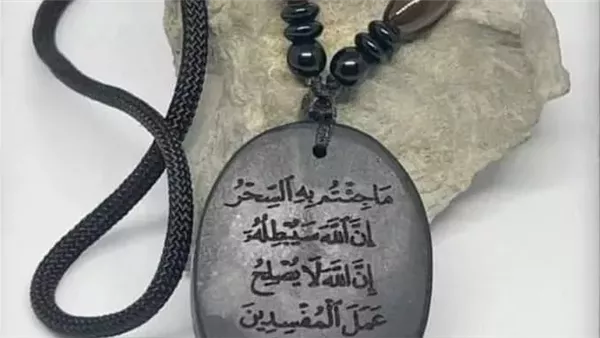 مَا جِئْتُمْ بِهِ السِّحْرُ
إِنَّ اللَّهَ سَيُبْطِلُهُ
إِنَّ اللَّهَ لَا يُصْلِحُ
عَمَلَ الْمُفْسِدِينَ